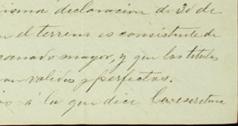 misma declaración de 30 de
el terreno es consistente de
ganado mayor, y que los títulos
validos y perfectos.
á la que dice la escritura